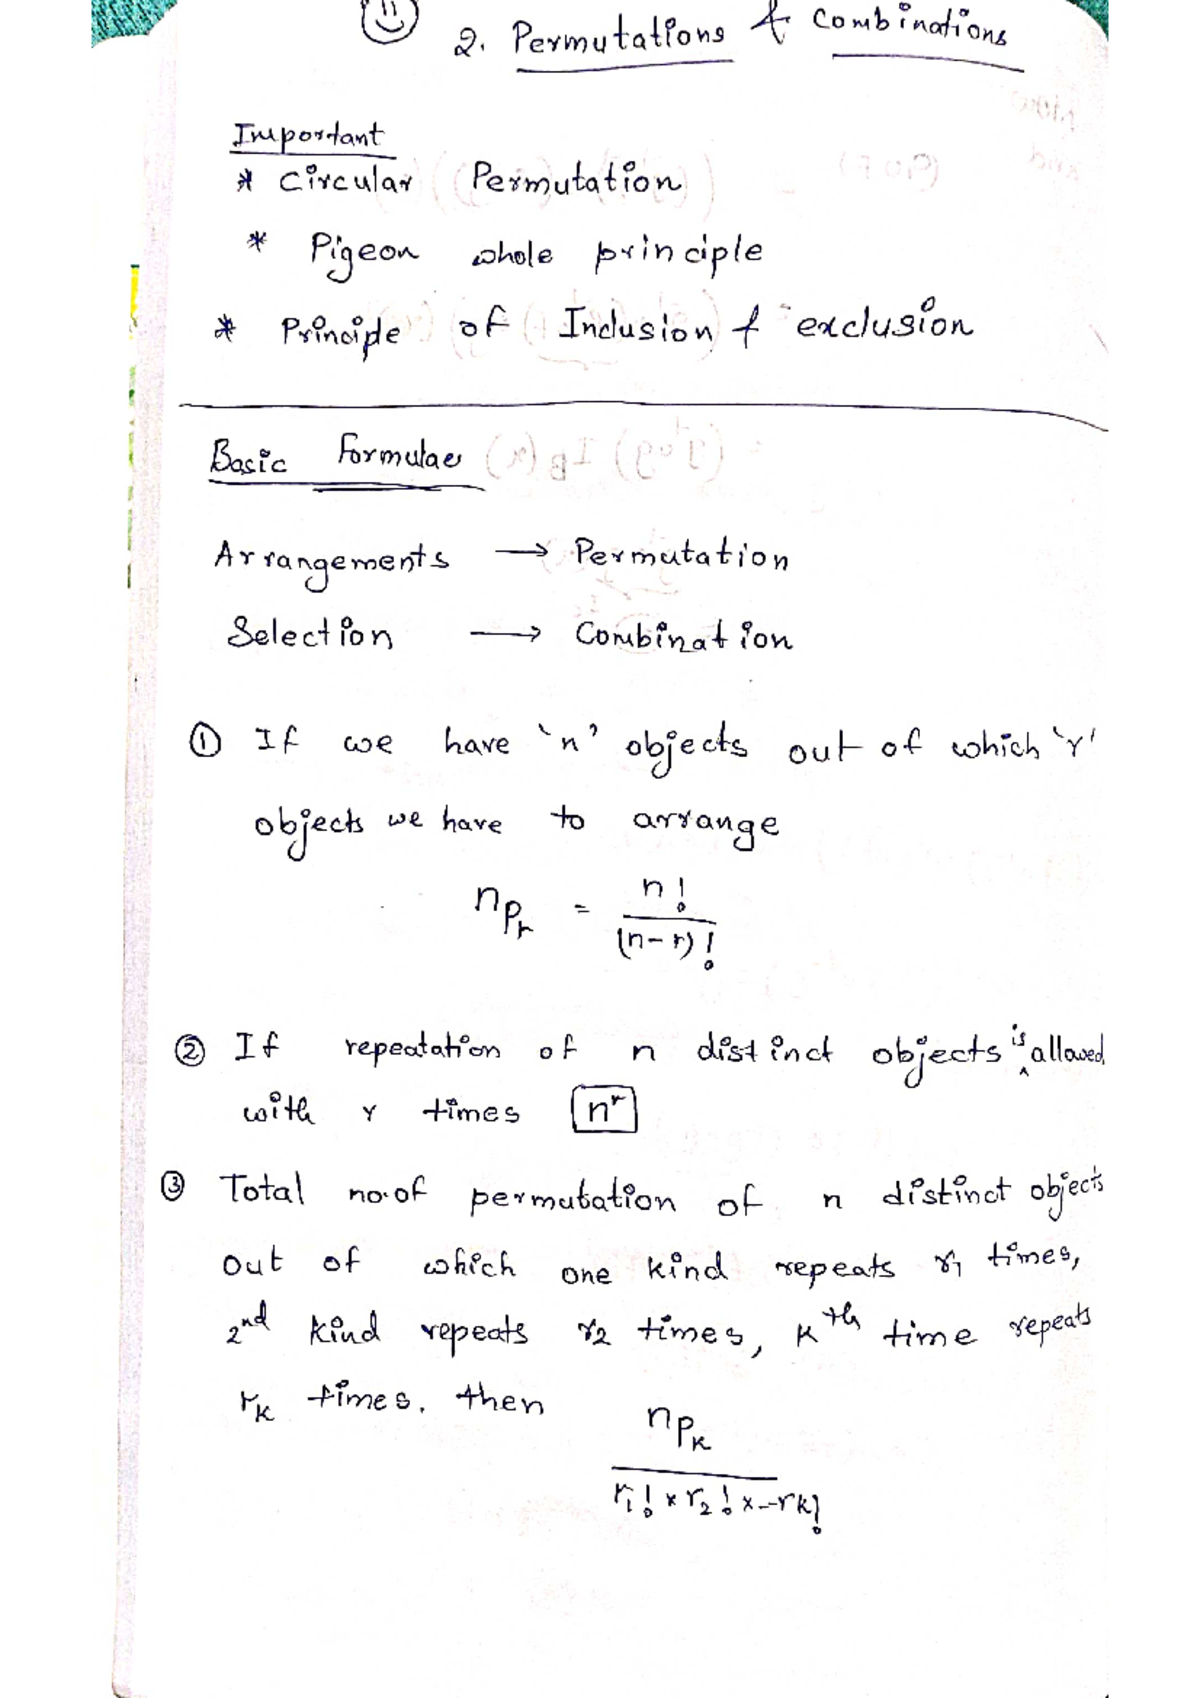 2. Permutations & Combinations
Important
* Circular Permutation
* Pigeon whole principle
* Principle of Inclusion & exclusion
Basic Formulae
Arrangements → Permutation
Selection → Combination
① If we have 'n' objects out of which 'r'
objects we have to arrange
nPr = n! / (n-r)!
② If repeatation of n distinct objects is allowed
with r times nʳ
③ Total no.of permutation of n distinct objects
out of which one kind repeats r1 times,
2nd kind repeats r2 times, Kth time repeats
rK times. then
nPK
r1! × r2! × -- rK!